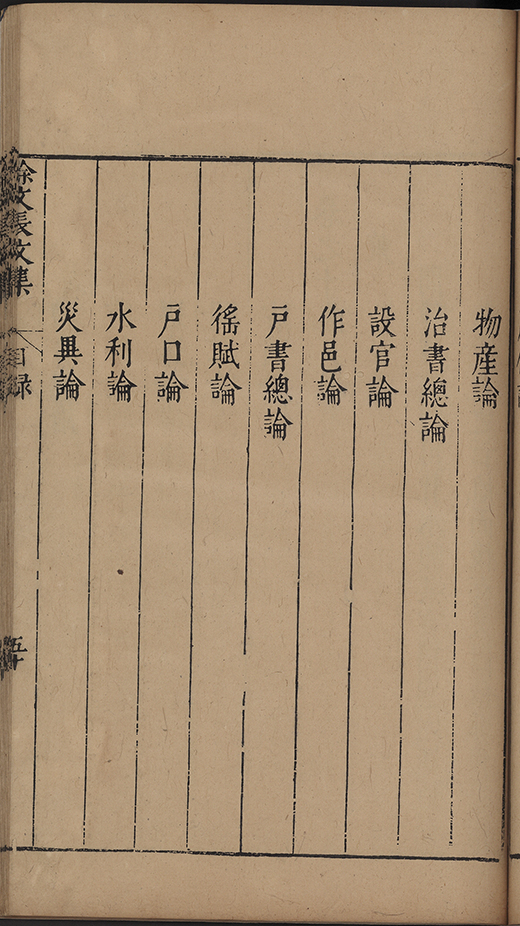 物產論
治書總論
設官論
作邑論
戶書總論
徭賦論
戶口論
水利論
災異論
徐文長文集
目録
五十